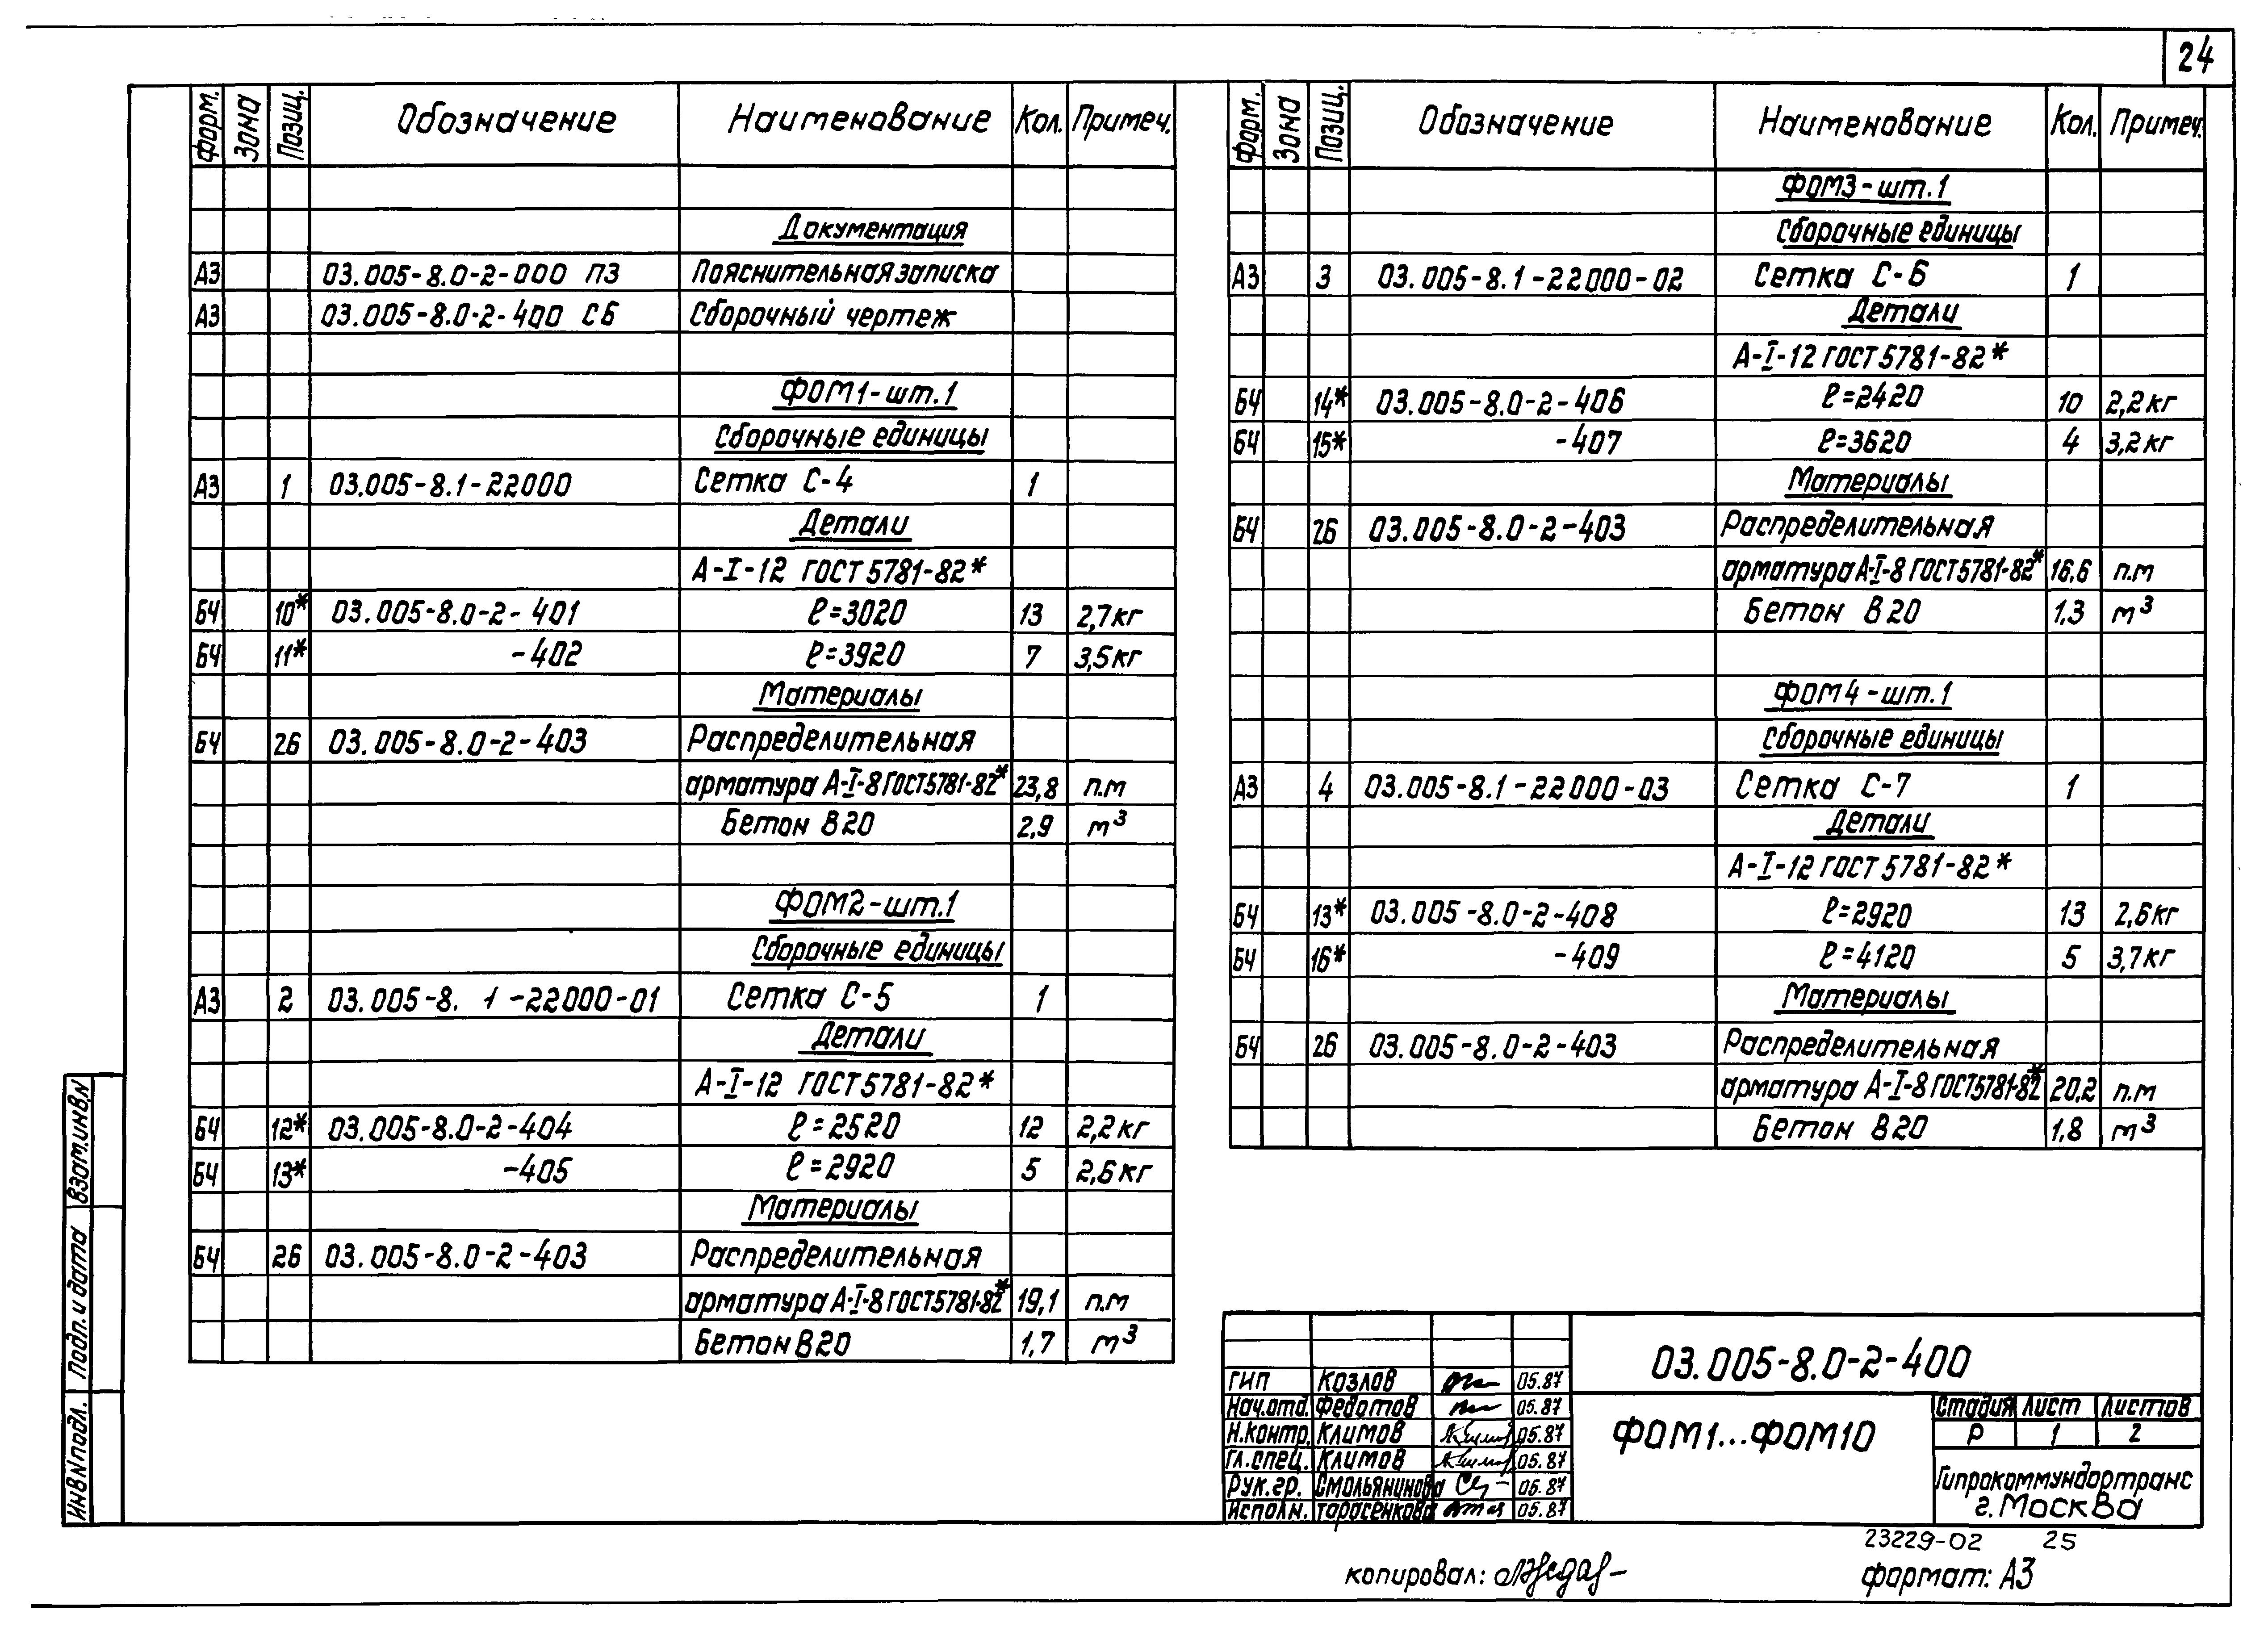 24
Форм. Зона Позиц. Обозначение Наименование Кол. Примеч.
Документация
А3 03.005-8.0-2-000 ПЗ Пояснительная записка
А3 03.005-8.0-2-400 СБ Сборочный чертеж
ФОМ1-шт.1
Сборочные единицы
А3 1 03.005-8.1-22000 Сетка С-4 1
Детали
А-I-12 ГОСТ 5781-82*
БЧ 10* 03.005-8.0-2-401 ℓ=3020 13 2,7кг
БЧ 11* -402 ℓ=3920 7 3,5кг
Материалы
БЧ 26 03.005-8.0-2-403 Распределительная
арматура А-I-8 ГОСТ5781-82* 23,8 п.м
Бетон В20 2,9 м³
ФОМ2-шт.1
Сборочные единицы
А3 2 03.005-8. 1-22000-01 Сетка С-5 1
Детали
А-I-12 ГОСТ5781-82*
БЧ 12* 03.005-8.0-2-404 ℓ=2520 12 2,2кг
БЧ 13* -405 ℓ=2920 5 2,6кг
Материалы
БЧ 26 03.005-8.0-2-403 Распределительная
арматура А-I-8 ГОСТ5781-82* 19,1 п.м
Бетон В20 1,7 м³
Форм. Зона Позиц. Обозначение Наименование Кол. Примеч.
ФОМ3-шт.1
Сборочные единицы
А3 3 03.005-8.1-22000-02 Сетка С-6 1
Детали
А-I-12 ГОСТ 5781-82*
БЧ 14* 03.005-8.0-2-406 ℓ=2420 10 2,2кг
БЧ 15* -407 ℓ=3620 4 3,2кг
Материалы
БЧ 26 03.005-8.0-2-403 Распределительная
арматура А-I-8 ГОСТ5781-82* 16,6 п.м
Бетон В20 1,3 м³
ФОМ4-шт.1
Сборочные единицы
А3 4 03.005-8.1-22000-03 Сетка С-7 1
Детали
А-I-12 ГОСТ 5781-82*
БЧ 13* 03.005-8.0-2-408 ℓ=2920 13 2,6кг
БЧ 16* -409 ℓ=4120 5 3,7кг
Материалы
БЧ 26 03.005-8.0-2-403 Распределительная
арматура А-I-8 ГОСТ5781-82* 20,2 п.м
Бетон В20 1,8 м³
Взам.инв.N
Подп. и дата
Инв N подл.
03.005-8.0-2-400
ГИП Козлов 05.87
Нач.отд. Федотов 05.87
Н.контр. Климов 05.87
Гл.спец. Климов 05.87
Рук.гр. Смольянинова 05.87
Исполн. Тарасенкова 05.87
ФОМ1...ФОМ10
Стадия Лист Листов
Р 1 2
Гипрокоммундортранс
г.Москва
23229-02 25
копировал:
формат: А3